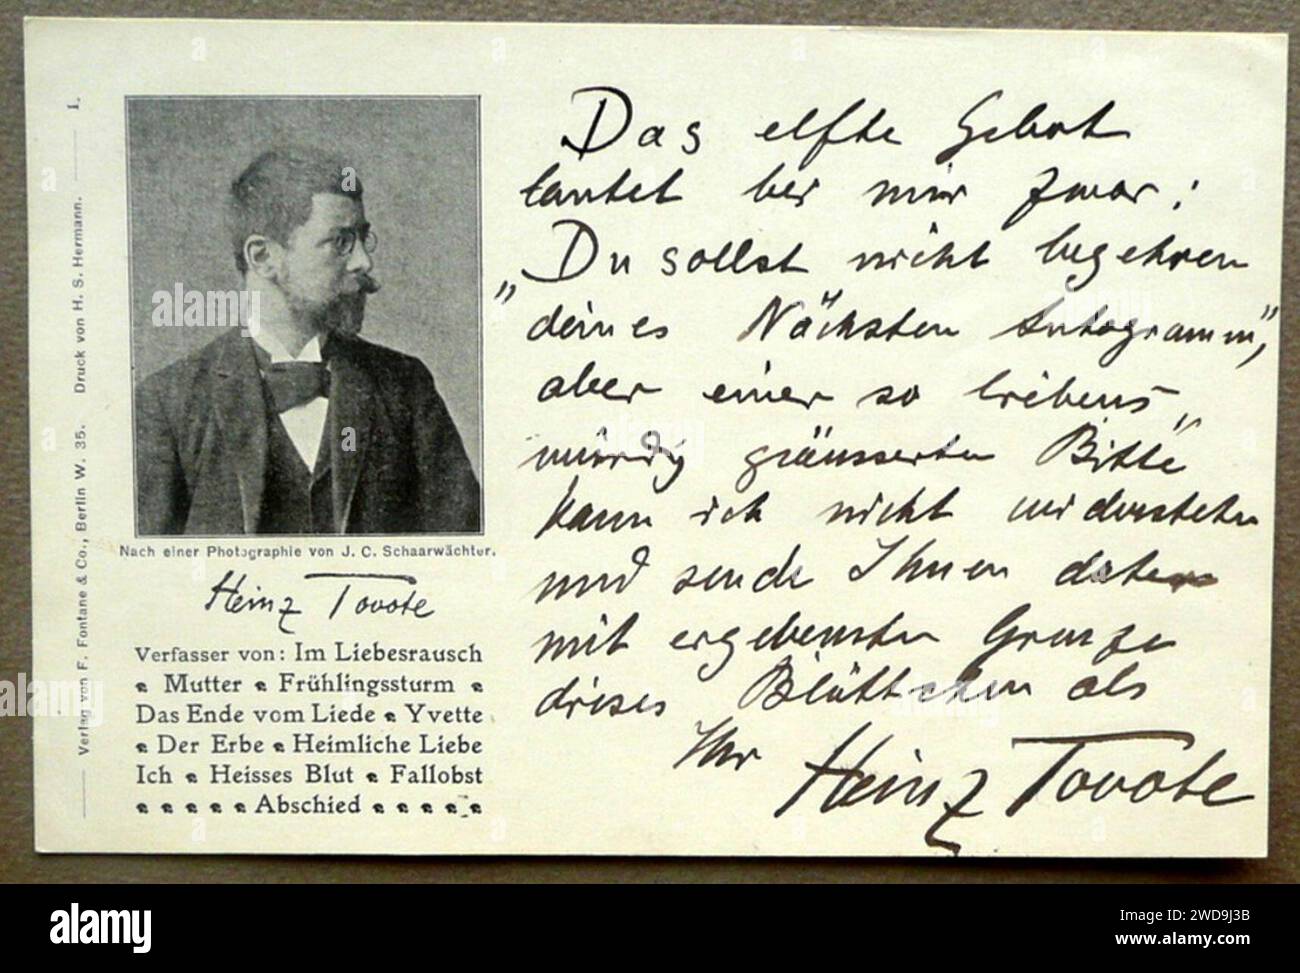 Verlag von F. Fontane & Co., Berlin W. 35. Druck von H. S. Hermann. 1.
Nach einer Photographie von J. C. Schaarwächter.
Heinz Tovote
Verfasser von: Im Liebesrausch
Mutter Frühlingssturm
Das Ende vom Liede Yvette
Der Erbe Heimliche Liebe
Ich Heisses Blut Fallobst
Abschied
Das elfte Gebot
lautet bei mir zwar:
„Du sollst nicht begehren
deines Nächsten Autogramm",
aber einer so liebens-
würdig geäusserten Bitte
kann ich nicht widerstehen
und sende Ihnen
mit ergebensten Grusze
dieses Blättchen als
Ihr Heinz Tovote
alamy
Image ID: 2WD9J3B
www.alamy.com